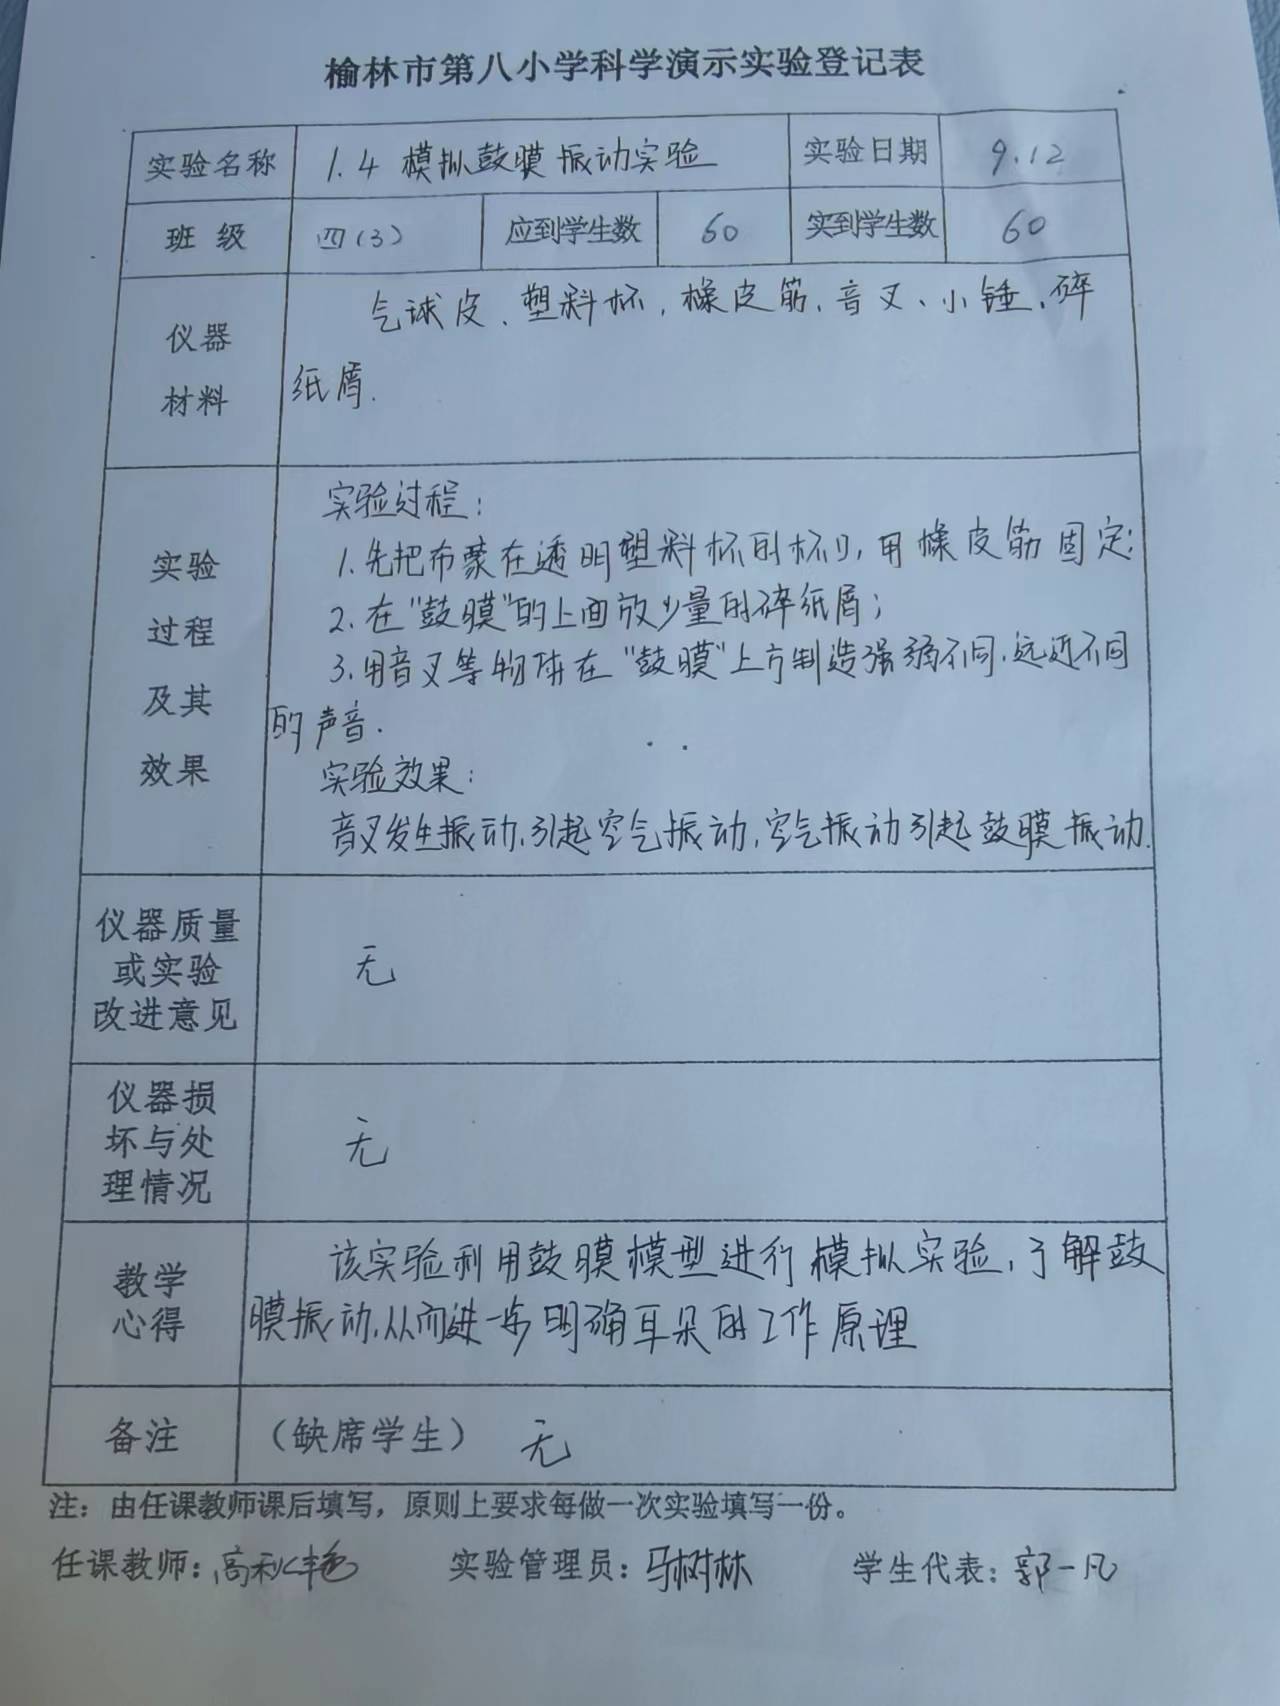 榆林市第八小学科学演示实验登记表
实验名称 1.4 模拟鼓膜振动实验 实验日期 9.12
班 级 四(3) 应到学生数 60 实到学生数 60
仪器
材料
气球皮、塑料杯,橡皮筋,音叉、小锤、碎
纸屑.
实验
过程
及其
效果
实验过程:
1.先把布蒙在透明塑料杯的杯口,用橡皮筋固定;
2.在“鼓膜”的上面放少量的碎纸屑;
3.用音叉等物体在“鼓膜”上方制造强弱不同.远近不同
的声音.
实验效果:
音叉发生振动,引起空气振动,空气振动引起鼓膜振动.
仪器质量
或实验
改进意见
无
仪器损
坏与处
理情况
无
教学
心得
该实验利用鼓膜模型进行模拟实验,了解鼓
膜振动,从而进一步明确耳朵的工作原理
备注 (缺席学生) 无
注:由任课教师课后填写,原则上要求每做一次实验填写一份。
任课教师: 实验管理员:马树林 学生代表:郭一凡